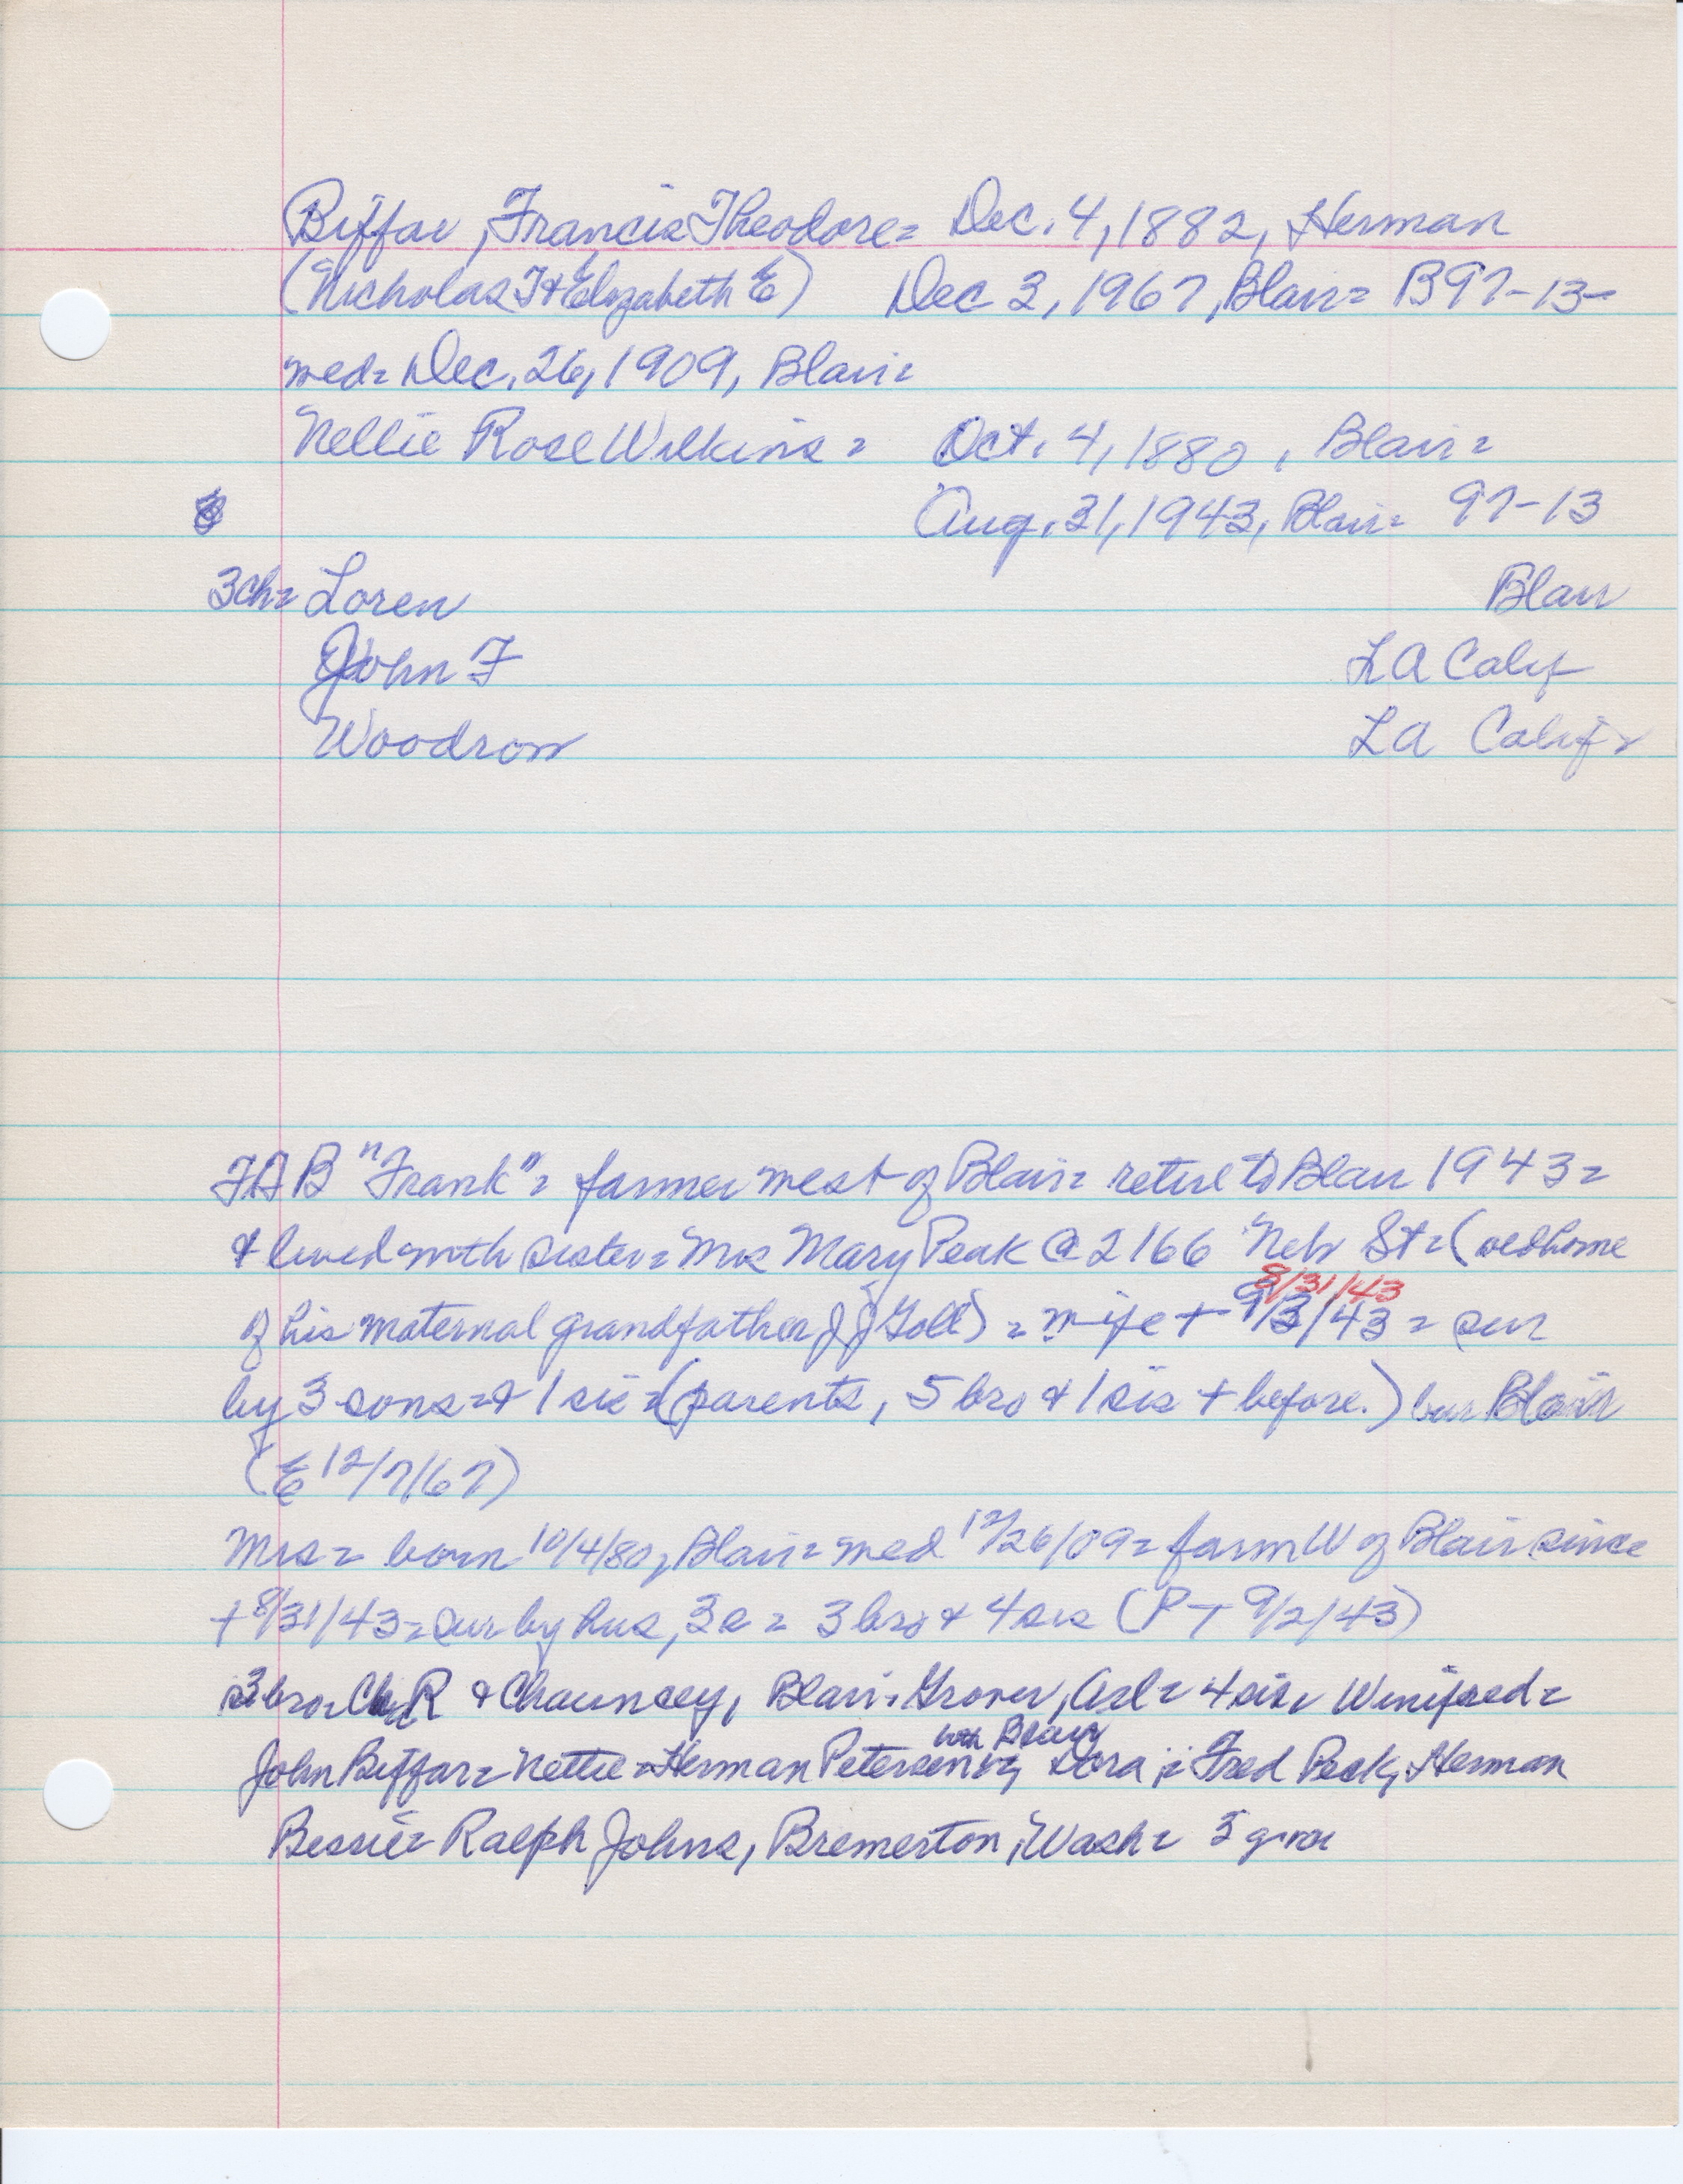 Biffar, Francis Theodore= Dec. 4, 1882, Herman
(Nicholas T & Elizabeth E) Dec 3, 1967, Blair= B97-13-
med= Dec. 26, 1909, Blair=
Nellie Rose Wilkins= Oct. 4, 1880, Blair=
Aug. 31, 1943, Blair= 97-13
3ch= Loren Blair
John F LA Calif
Woodrow LA Calif=
B "Frank"= farmer west of Blair= retire to Blair 1943=
& lived with sister= Mrs Mary Peak @ 2166 Neb St= (old home
8/31/43
of his maternal grandfather J J Goll) = wife + 9/3/43 = sur
by 3 sons= & 1 sis= (parents, 5 bro & 1 sis + before.) bur Blair
(E 12/7/67)
Mrs= born 10/4/80, Blair= med 12/26/09= farm W of Blair since
+ 8/31/43= sur by hus, 3s= 3 bro & 4 sis (P-T 9/2/43)
3 bro= R & Chauncey, Blair, Grover, Arl= 4 sis, Winifred=
both Blair
John Biffar= Nettie= Herman Petersen= Dora= Fred Peck, Herman
Bessie= Ralph Johns, Bremerton, Wash= 3